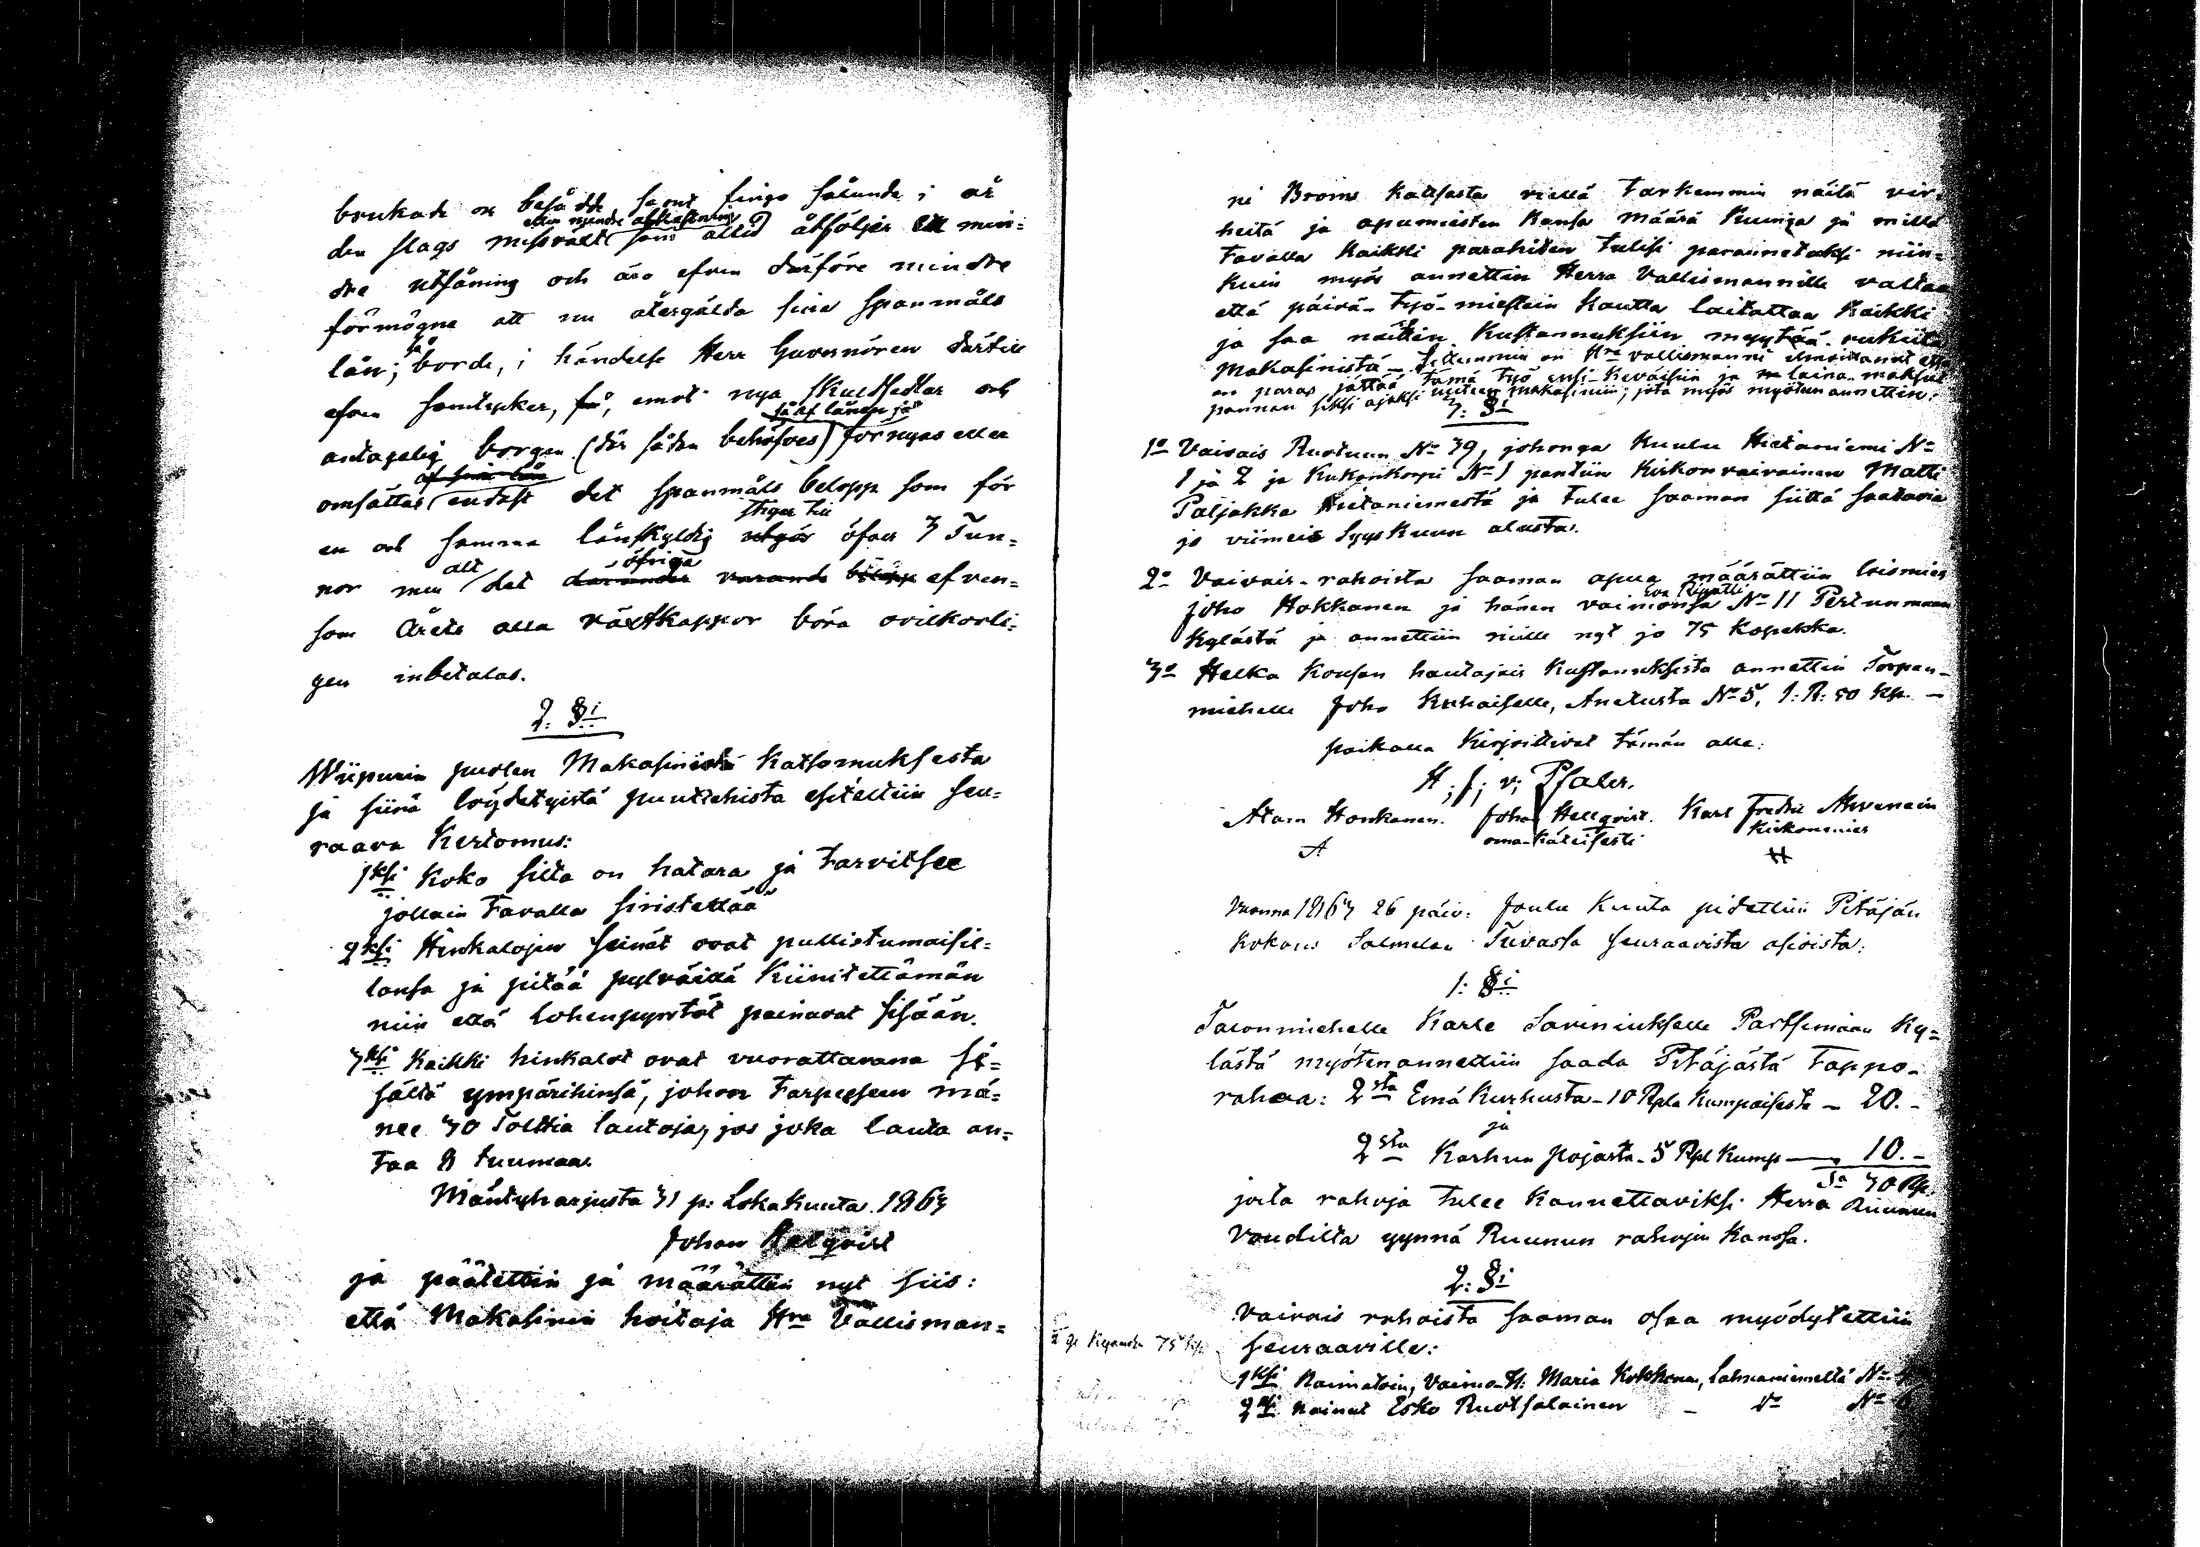 brukade och besådde samt fingo sålunda i år
eller mindre afkastning
den slags missvält som alltid åtföljer en min=
dre utsåning och äro efven därföre mindre
förmögne att nu återgälda sine spanmåls
lån; så borde, i händelse Herr Guvernören därtill
efven samtycker, få, emot nya skuldsedlar och
så af lånen jä
antagelig borgen (där sådan behöfves) förnyas eller
af sina lån
omsättas endast det spanmåls belopp som för
stiger till
en och samma lånskyldig utgör öfver 3 Tun=
allt öfriga
nor men det darunder varande belopp efven=
som Årets alla växtkappor böra ovilkorli=
gen inbetalas.
2: §i
Wiipurin puolen Makasinista katsomuksesta
ja siinä löydetyistä puutteista esiteltiin seu=
raava Kertomus:
1ksi Koko silta on hatara ja tarvitsee
jollain tavalla siristettää
2ksi Hinkalojen seinät ovat pullistumaisil=
lansa ja pitää pylväillä kiinitettämän
niin että lohenpyrstöt painavat sisään.
3ksi Kaikki hinkalot ovat vuorattavana si=
sältä ympärihinsä, johon tarpeeseen mä=
nee 30 Tolttia lautoja, jos joka lauta an=
taa 8 tuumaa.
Mäntyharjusta 31 p: Lokakuuta 1863
Johan Helqvist
ja päätettiin ja määrättiin nyt siis:
että Makasinin hoitaja Hra Vallisman=
ni Broms katsasta vielä tarkemmin näitä vir=
heitä ja apumiesten kansa määrä kuinga ja millä
tavalla kaikki parahiten tulisi parannetuksi niin=
kuin myös annettiin Herra Vallismannille valtaa
että päivä-työ-miestein kautta laitattaa kaikki
ja saa näitten kustannuksiin myytää rukiita
Makasinista – Sittemmin on Hra vallismanni ilmoittanut että
on paras jättää tämä työ ensi-keväisiin ja laina-maksut
pannan siksi ajaksi uuteen makasiniin; jota myös myöten annettiin.
3: §i
1o Vaivais Ruotuun No 39, johonga kuulu Hietaniemi No
1 ja 2 ja Kukonkorpi No 1 pantiin kirkonvaivainen Matti
Paljakka Hietaniemestä ja tulee saaman siitä saatavia
jo viimeis Syyskuun alusta.
2o Vaivais-rahoista saaman apua määrättiin loismies
Eva Pynäll
Joho Hokkanen ja hänen vaimonsa No 11 Pertunmaan
kylästä ja annettiin niille nyt jo 75 kopekka.
3o Helka Kousan hautajais kustannuksista annettiin Torpan=
miehelle Joho Kuhaiselle, Anetusta No 5, 1: R: 50 kp. –
paikalla kirjoittivat tämän alle:
H: J: v: Pfaler.
Atam Honkanen. Johan Hellqvist. Karl Fredri Ahvenain
A oma-käteisesti Kirkonmies
H
Vuonna 1863 26 päiv: Joulu Kuuta pidettiin Pitäjän
kokous Salmelan Tuvassa seuraavista asioista:
1: §i
Talonmiehelle Karle Saviniukselle Partsimaan Ky=
lästä myöten annettiin saada Pitäjästä tappo-
rahaa: 2sta Emä Kurhusta – 10 Rpla Kumpaisesta – 20. –
ja
2sta Karhun pojasta – 5 Rpl Kump – 10. –
Sa 30 Rp.
joita rahoja tulee kannettaviksi Herra Ruunun
voudilta yynnä Ruunun rahojen kanssa.
2: §i
Vaivais rahoista saaman osaa myödytettiin
seuraaville:
1ksi Raimatoin, Vaimo-H: Maria Kokkona, Lahnaniemeltä No
2ksi Nainut Esko Ruotsalainen – do No 6
75 kp.